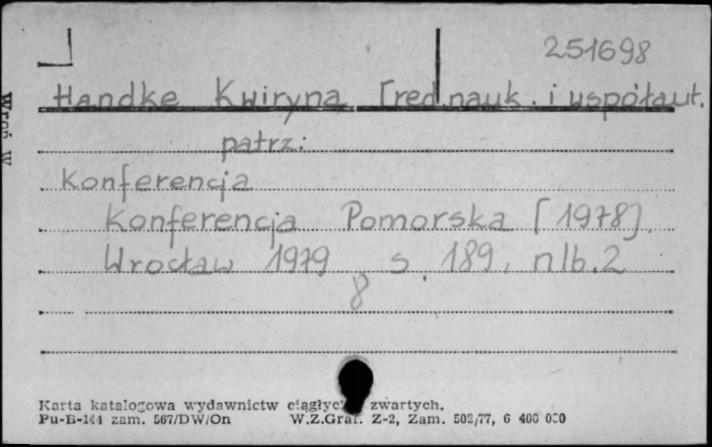 251698
Handke Kwiryna [red. nauk. i współaut.
patrz:
Konferencja
Konferencja Pomorska [1978].
Wrocław 1979 s. 189, nlb. 2
8
Karta katalogowa wydawnictw zwartych.
Pu-B-144 zam. 567/DW/On W.Z.Graf. Z-2, Zam. 502/77, 6 400 000